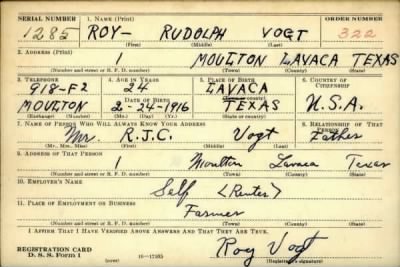 SERIAL NUMBER 1. NAME (Print) ORDER NUMBER
1285 ROY- RUDOLPH VOGT 322
(First) (Middle) (Last)
2. ADDRESS (Print)
1 MOULTON LAVACA TEXAS
(Number and street or R. F. D. number) (Town) (County) (State)
3. TELEPHONE 4. AGE IN YEARS 5. PLACE OF BIRTH 6. COUNTRY OF CITIZENSHIP
918-F2 24 LAVACA
DATE OF BIRTH (Town or county)
MOULTON 2-24-1916 TEXAS U.S.A.
(Exchange) (Number) (Mo.) (Day) (Yr.) (State or country)
7. NAME OF PERSON WHO WILL ALWAYS KNOW YOUR ADDRESS 8. RELATIONSHIP OF THAT PERSON
Mr. R.J.C. Vogt Father
(Mr., Mrs., Miss) (First) (Middle) (Last)
9. ADDRESS OF THAT PERSON
1 Moulton Lavaca Texas
(Number and street or R. F. D. number) (Town) (County) (State)
10. EMPLOYER'S NAME
Self (Renter)
11. PLACE OF EMPLOYMENT OR BUSINESS
Farmer
(Number and street or R. F. D. number) (Town) (County) (State)
I AFFIRM THAT I HAVE VERIFIED ABOVE ANSWERS AND THAT THEY ARE TRUE.
REGISTRATION CARD
D. S. S. Form 1 (over) 16-17105 Roy Vogt
(Registrant's signature)